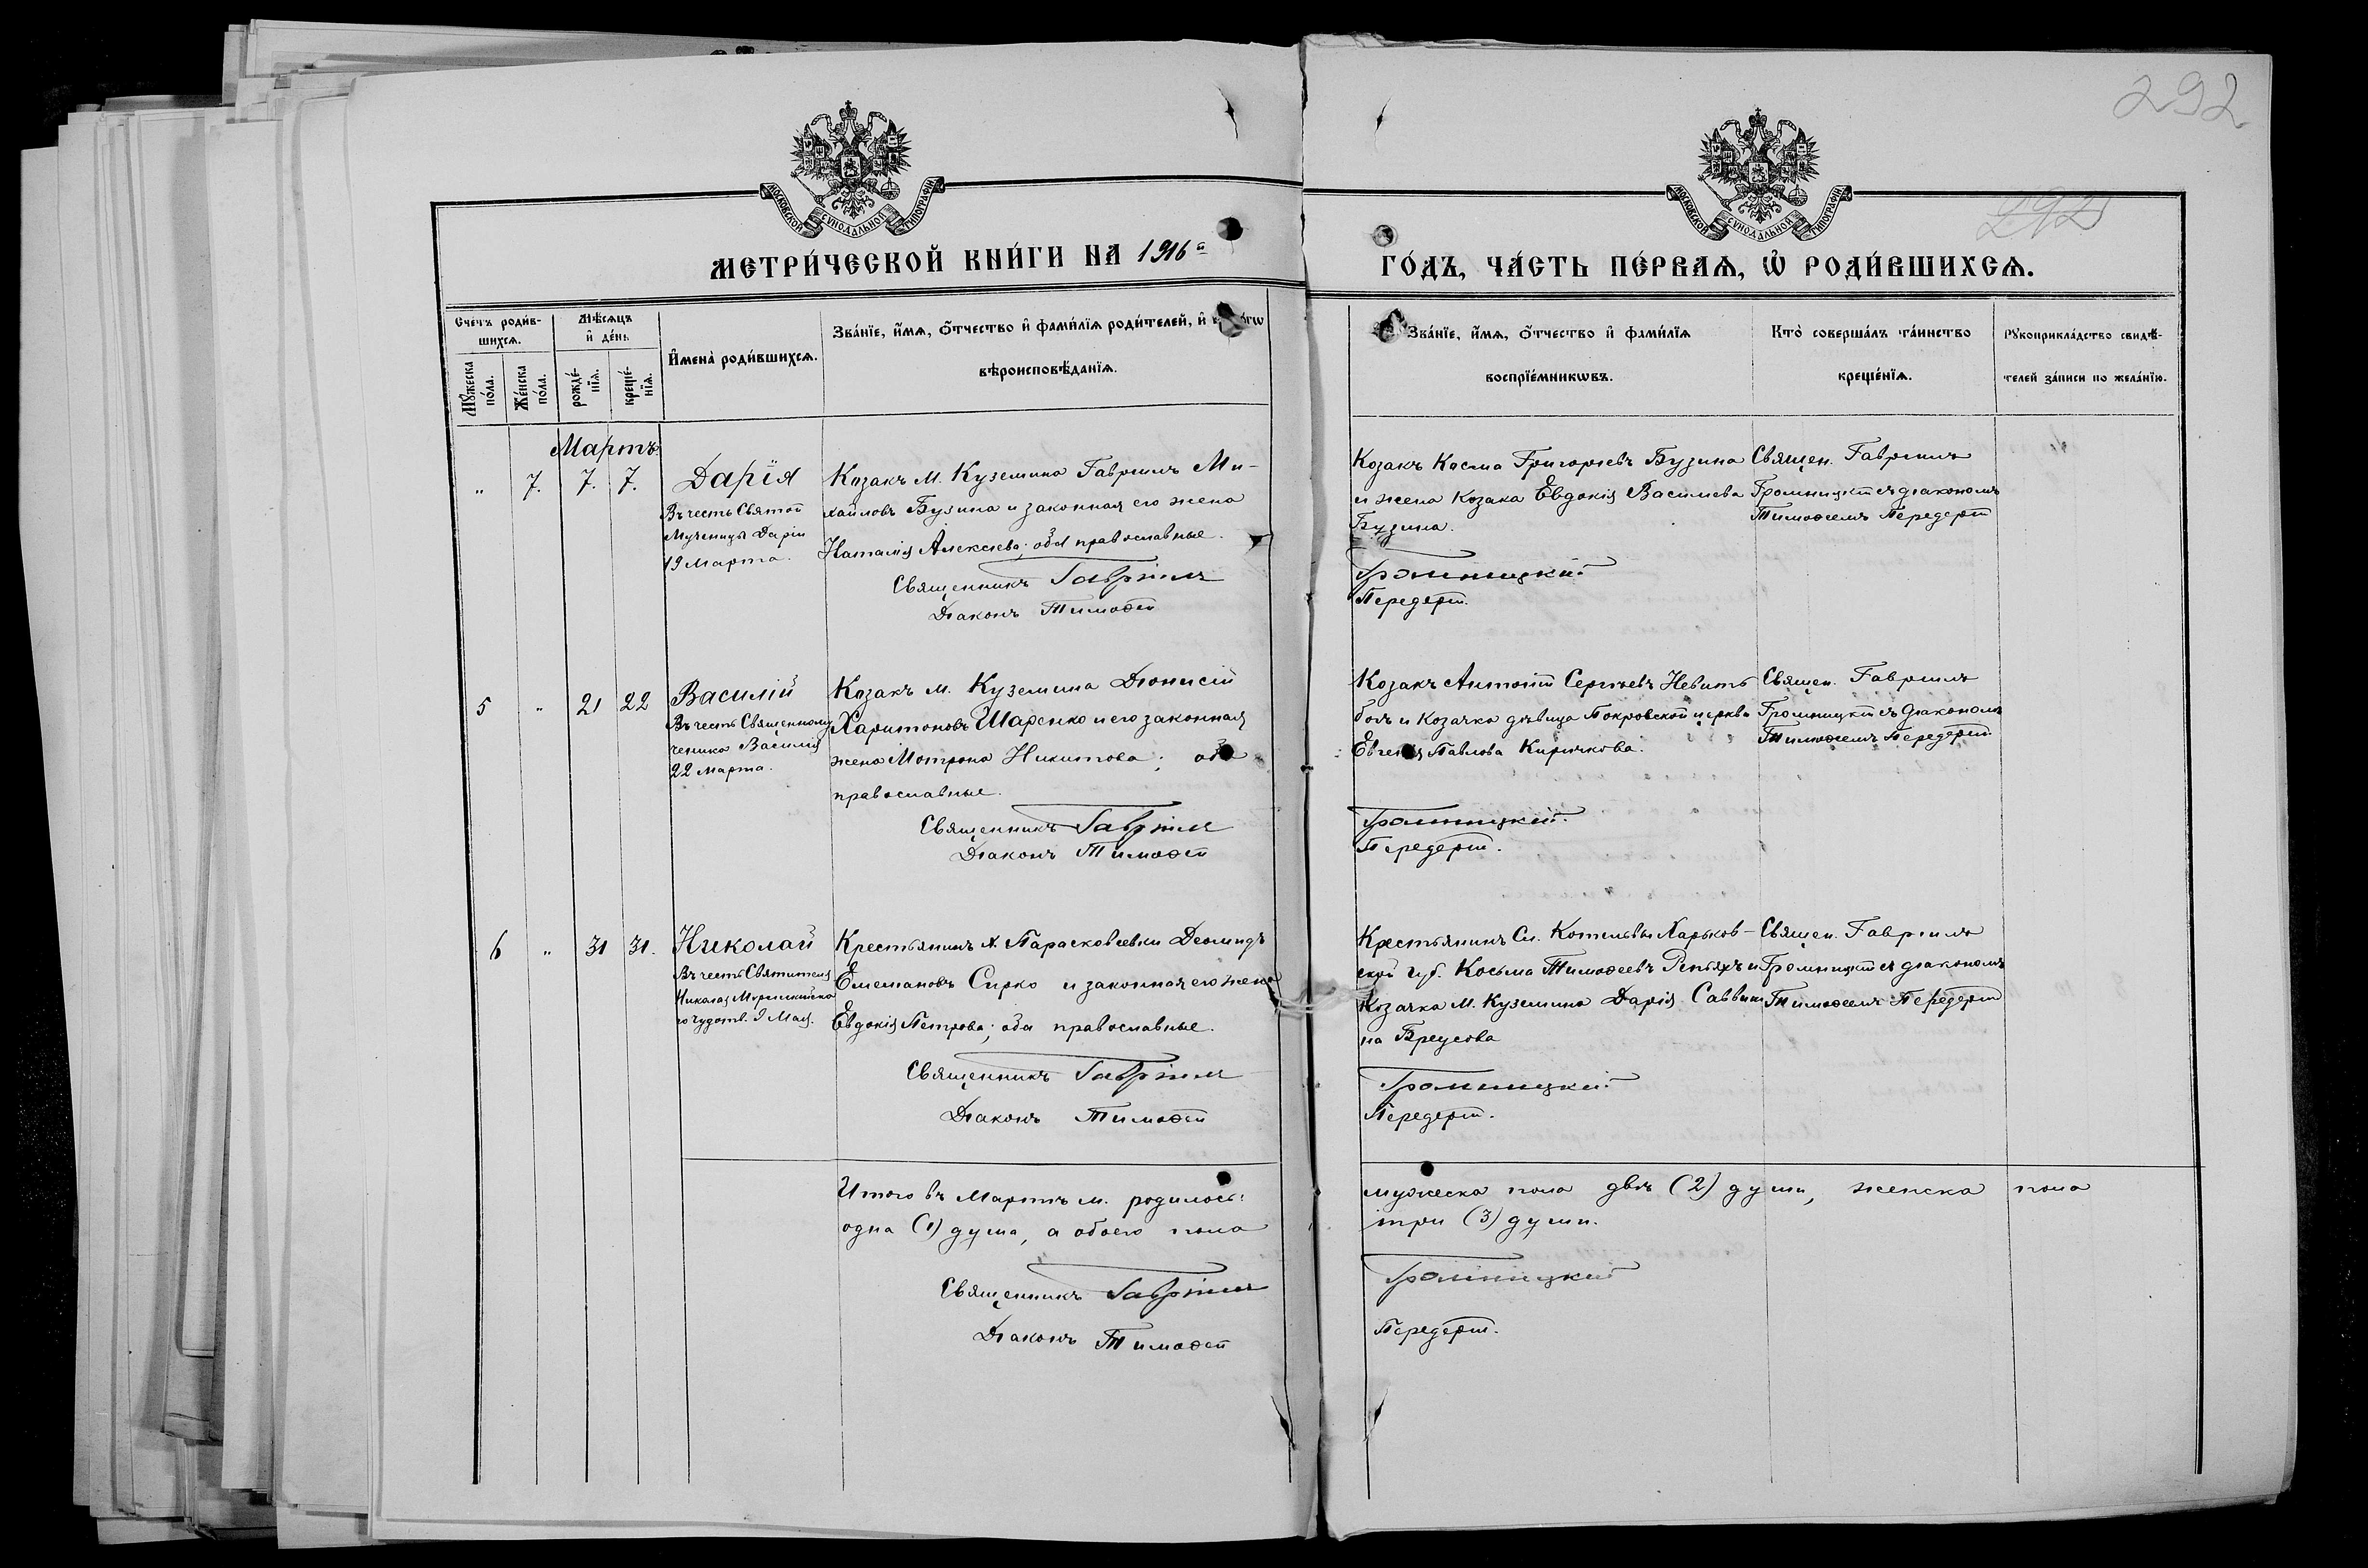 292
292
МОСКОВСКОЙ СѴНОДАЛЬНОЙ ТИПОГРАФІИ
МОСКОВСКОЙ СѴНОДАЛЬНОЙ ТИПОГРАФІИ
МЕТРИ́ЧЕСКОЙ КНИ́ГИ НА 1916й
ГО́ДЪ, ЧА́СТЬ ПЕ́РВАѦ, Ѡ҆ РОДИ́ВШИХСѦ.
Счетъ роди́в-
шихсѧ.
Мꙋ́жеска
по́ла.
Же́нска
по́ла.
Мѣ́сѧцъ
и҆ де́нь
рожде́-
нїѧ.
креще́-
нїѧ.
И҆мена̀ роди́вшихсѧ.
Зва́нїе, и҆́мѧ, ѻ҆́тчество и҆ фами́лїѧ роди́телей, и҆
вѣроисповѣ́данїѧ.
Зва́нїе, и҆́мѧ, ѻ҆́тчество и҆ фами́лїѧ
воспрїе́мникѡвъ.
Кто̀ соверша́лъ та́инство
креще́нїѧ.
Рꙋкоприкла́дство свидѣ́-
телей за́писи по жела́нїю.
Мартъ
„ 7. 7. 7.
Дарія
Въ честь Святой
Мученицы Даріи
19 Марта.
Козакъ М. Куземина Гавріилъ Ми-
хайловъ Бузина и законная его жена
Наталія Алексѣева; оба православные.
Священникъ Гавріилъ
Діаконъ Тимофей
Козакъ Косма Григорьевъ Бузина
и жена козака Евдокія Васильева
Бузина.
Громницкій
Передерій.
Священ. Гавріилъ
Громницкій съ діакономъ
Тимофеемъ Передерій
5 „ 21 22
Василій
Въ честь Священному
ченика Василія
22 Марта.
Козакъ м. Куземина Діонисій
Харитоновъ Шаренко и его законная
жена Мотрона Никитова; оба
православные.
Священникъ Гавріилъ
Діаконъ Тимофей
Козакъ Антоній Сергѣевъ
и Козачка дѣвица Покровской церкви
Евгенія Павлова Киричкова.
Громницкій.
Передерій.
Священ. Гавріилъ
Громницкій съ діакономъ
Тимофеемъ Передерій
6 „ 31 31.
Николай
Въ честь Святителя
Николая Мирликійска
го чудотв. 9 Мая.
Крестьянинъ х. Парасковеевки Деомидъ
Емельяновъ Сирко и законная его жена
Евдокія Петрова; оба православные.
Священникъ Гавріилъ
Діаконъ Тимофей
Крестьянинъ Сл. Котельвы Харьков-
ской губ. Косьма Тимофеевъ Репьяхъ и
Козачка М. Куземина Дарія Савви
на Бреусова
Громницкій
Передерій.
Священ. Гавріилъ
Громницкій съ діакономъ
Тимофеемъ Передерій
Итого въ Мартѣ м. родилось:
одна (1) душа, а обоего пола
Священникъ Гавріилъ
Діаконъ Тимофей
мужеска пола двѣ (2) души, женска пола
три (3) души.
Громницкій
Передерій.